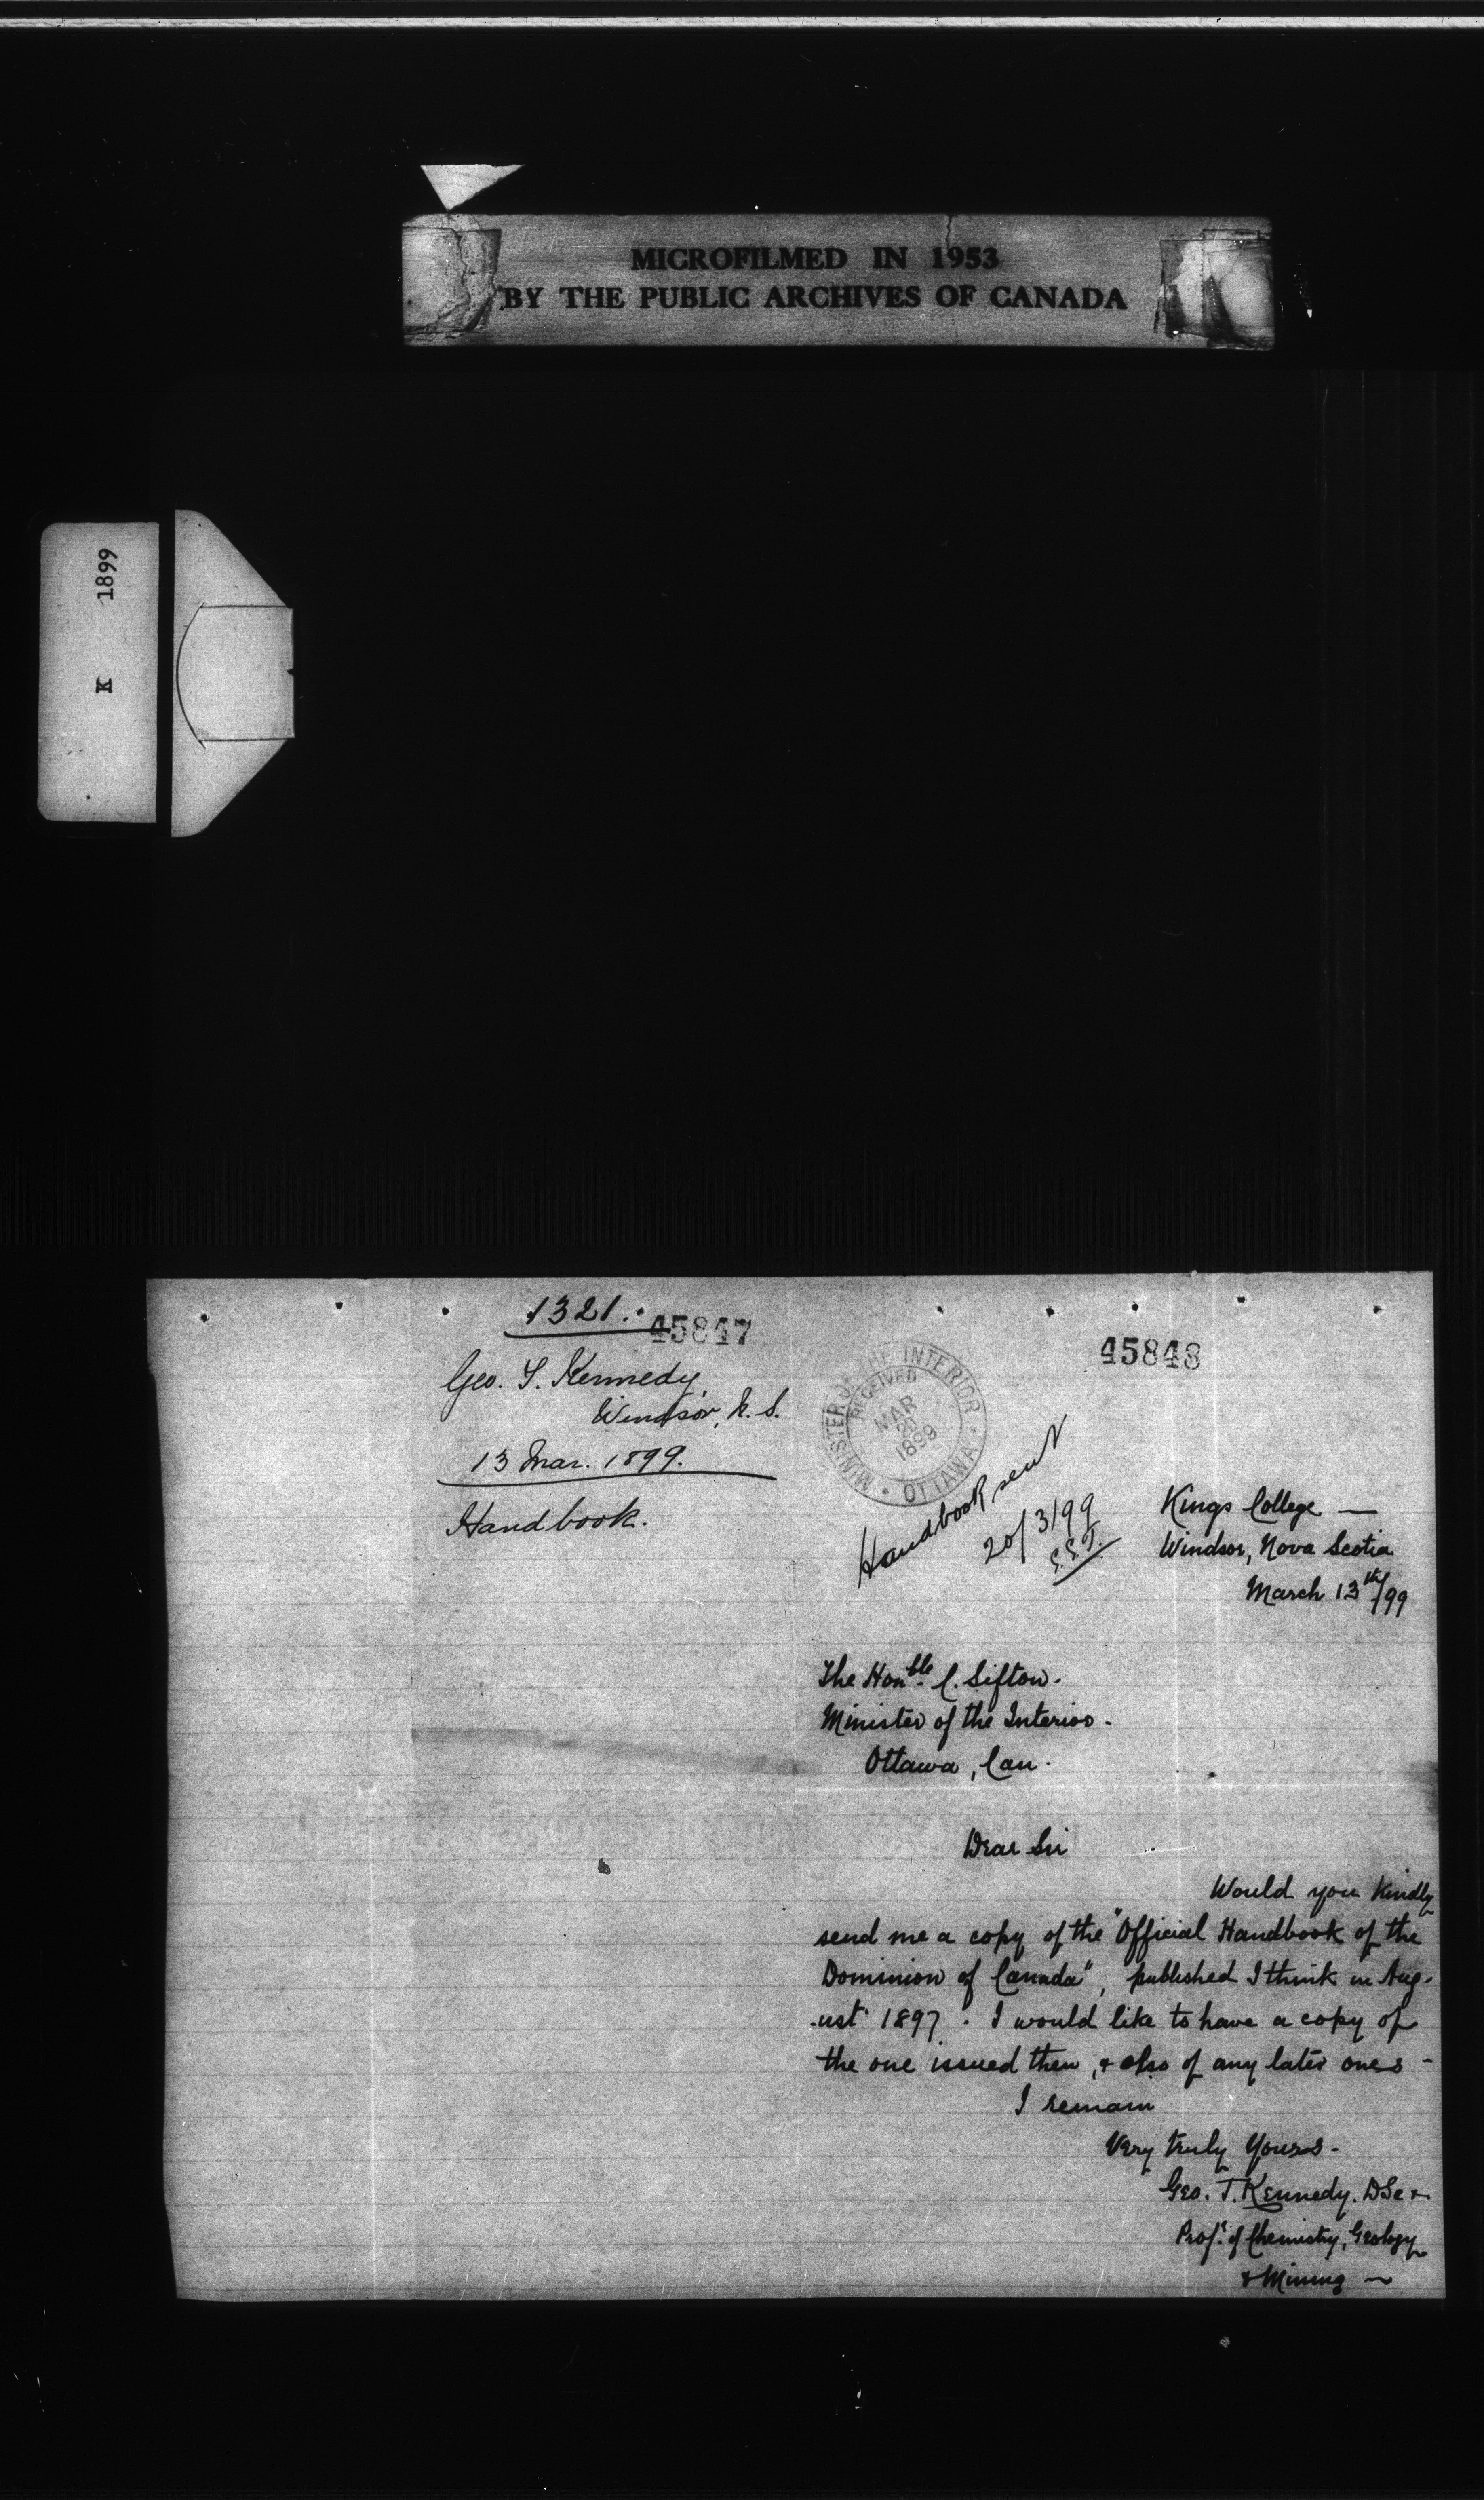 MICROFILMED IN 1953
BY THE PUBLIC ARCHIVES OF CANADA
K 1899
1321.
45847
Geo. T. Kennedy,
Windsor, N. S.
13 Mar. 1899.
Handbook.
45848
MINISTER OF THE INTERIOR
RECEIVED
MAR
20
1899
OTTAWA
Handbook sent
20/3/99
Kings College —
Windsor, Nova Scotia
March 13th/99
The Honble C. Sifton.
Minister of the Interior.
Ottawa, Can.
Dear Sir
Would you kindly
send me a copy of the "Official Handbook of the
Dominion of Canada", published I think in Aug-
-ust 1897. I would like to have a copy of
the one issued then, & also of any later ones -
I remain
Very truly Yours -
Geo. T. Kennedy. DSc &
Profr. of Chemistry, Geology
& Mining ~